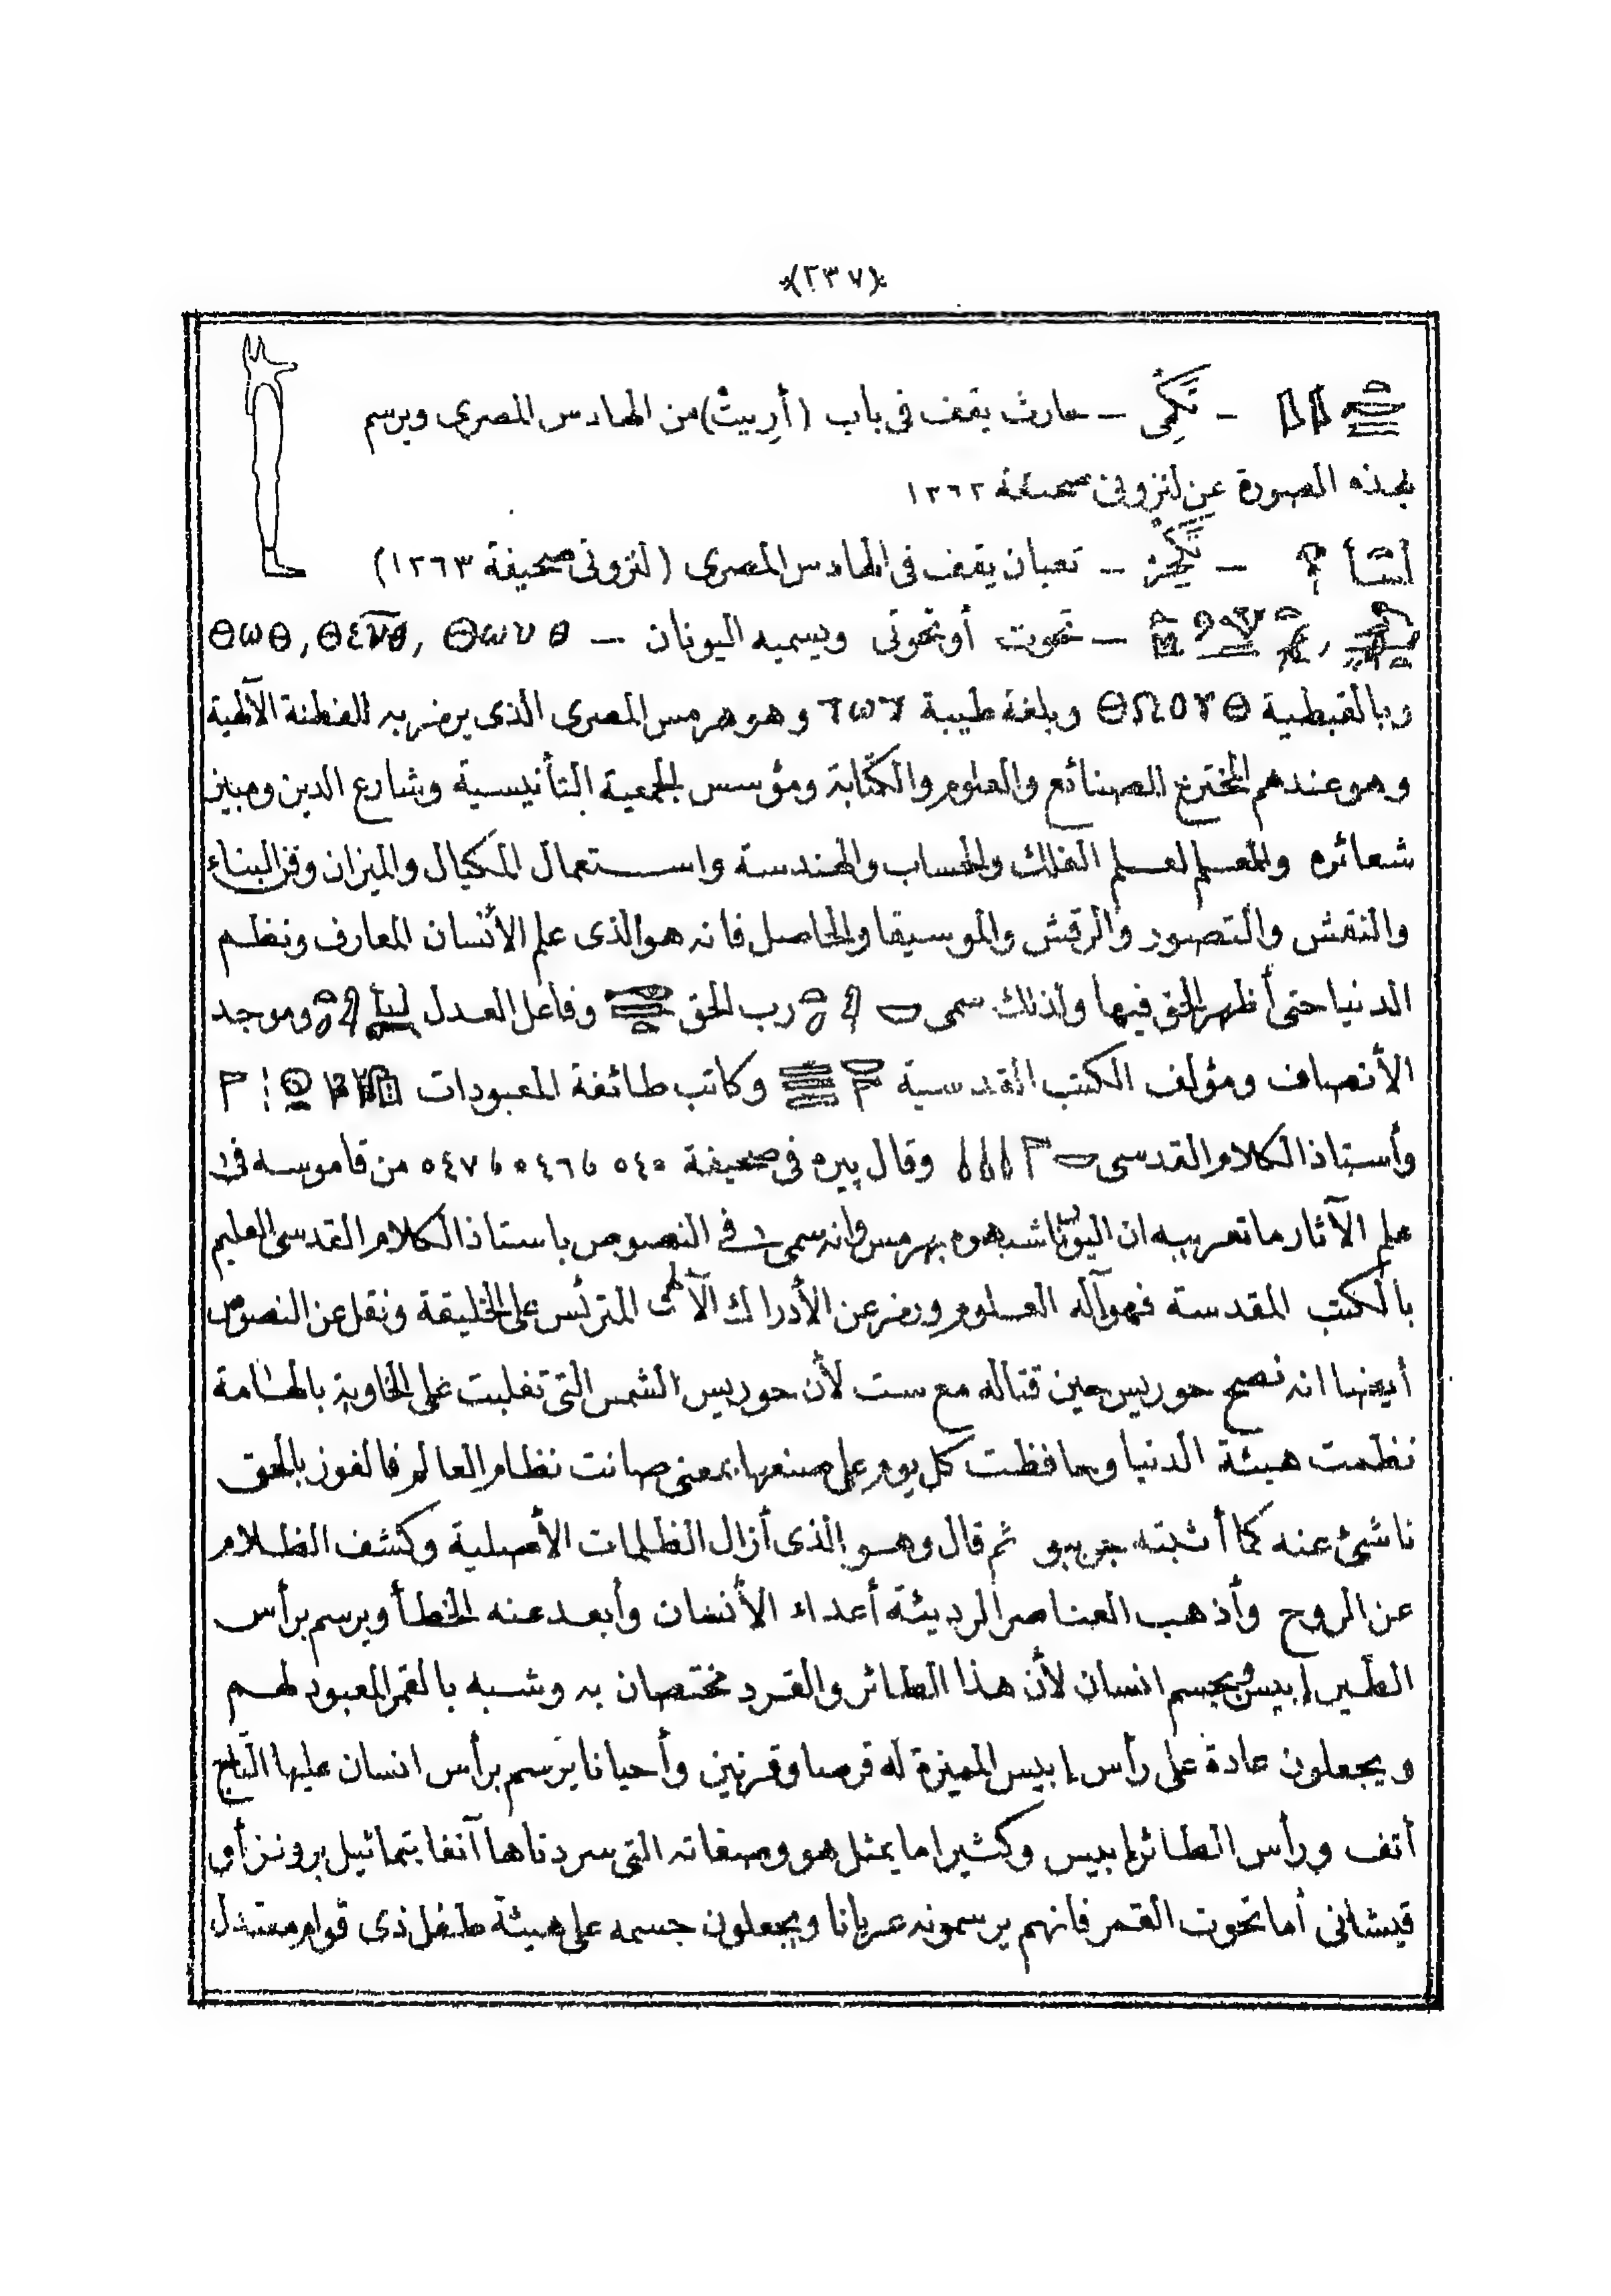 (٢٣٧)
– تَكِمى – حارث يقف فى باب (أرِبيتْ) من الهادس المصرى ويرسم
بهذه الصورة عن لنزونى صحيفة ١٢٦٢
– – تعبان يقف فى الهادس المصرى (لنزونى صحيفة ١٢٦٣)
– تحوت أوتحوتى ويسميه اليونان – Θωυθ , Θευθ, Θωθ
وبالقبطية ΘΩΟΥΘ وبلغة طيبة وهو هرمس المصرى الذى يرمز به للفطنة الآلهية
وهو عندهم المخترع للصنائع والعلوم والكتابة ومؤسس الجمعية التأنيسية وشارع الدين ومبين
شعائره والمعلم لعلم الفلك والحساب والهندسة واستعمال المكيال والميزان وفن البناء
والنقش والتصور والرقش والموسيقا والحاصل فانه هو الذى علم الأنسان المعارف ونظم
الدنيا حتى أظهر الحق فيها ولذلك سمى رب الحق وفاعل العدل وموجد
الأنصاف ومؤلف الكتب المقدسية وكاتب طائفة المعبودات
وأستاذ الكلام القدسى وقال پيره فى صحيفة ٥٤٥ و٥٤٦ و٥٤٧ من قاموسه فى
علم الآثار ما تعريبه ان اليونان شبهوه بهرمس وانه سمى فى النصوص باستاذ الكلام القدسى العليم
بالكتب المقدسة فهو آله العلوم ورمز عن الأدراك الآلهى المترئس على الخليقة ونقل عن النصوص
أيضا انه نصح حوريس حين قتاله مع ست لأن حوريس الشمس التى تغلبت على الخاوية بالهامة
نظمت هيئة الدنيا وحافظت كل يوم على صنعها بمعنى صانت نظام العالم فالفوز بالحق
ناشئ عنه كما أثبته جريبو ثم قال وهو الذى أزال الظلمات الأصلية وكشف الظلام
عن الروح وأذهب العناصر الرديئة أعداء الأنسان وأبعد عنه الخطأ ويرسم برأس
الطير إبيس وبجسم انسان لأن هذا الطائر والقرد مختصان به وشبه بالقمر المعبود لهم
ويجعلون عادة على رأس إبيس المميزة له قرصا وقرنين وأحيانا يرسم برأس انسان عليها التاج
أتف ورأس الطائر إبيس وكثيرا ما يمثل هو وصفاته التى سردناها آنفا بتماثيل برونز أو
قيشانى أما تحوت القمر فانهم يرسمونه عريانا ويجعلون جسمه على هيئة طفل ذى قوام معتدل